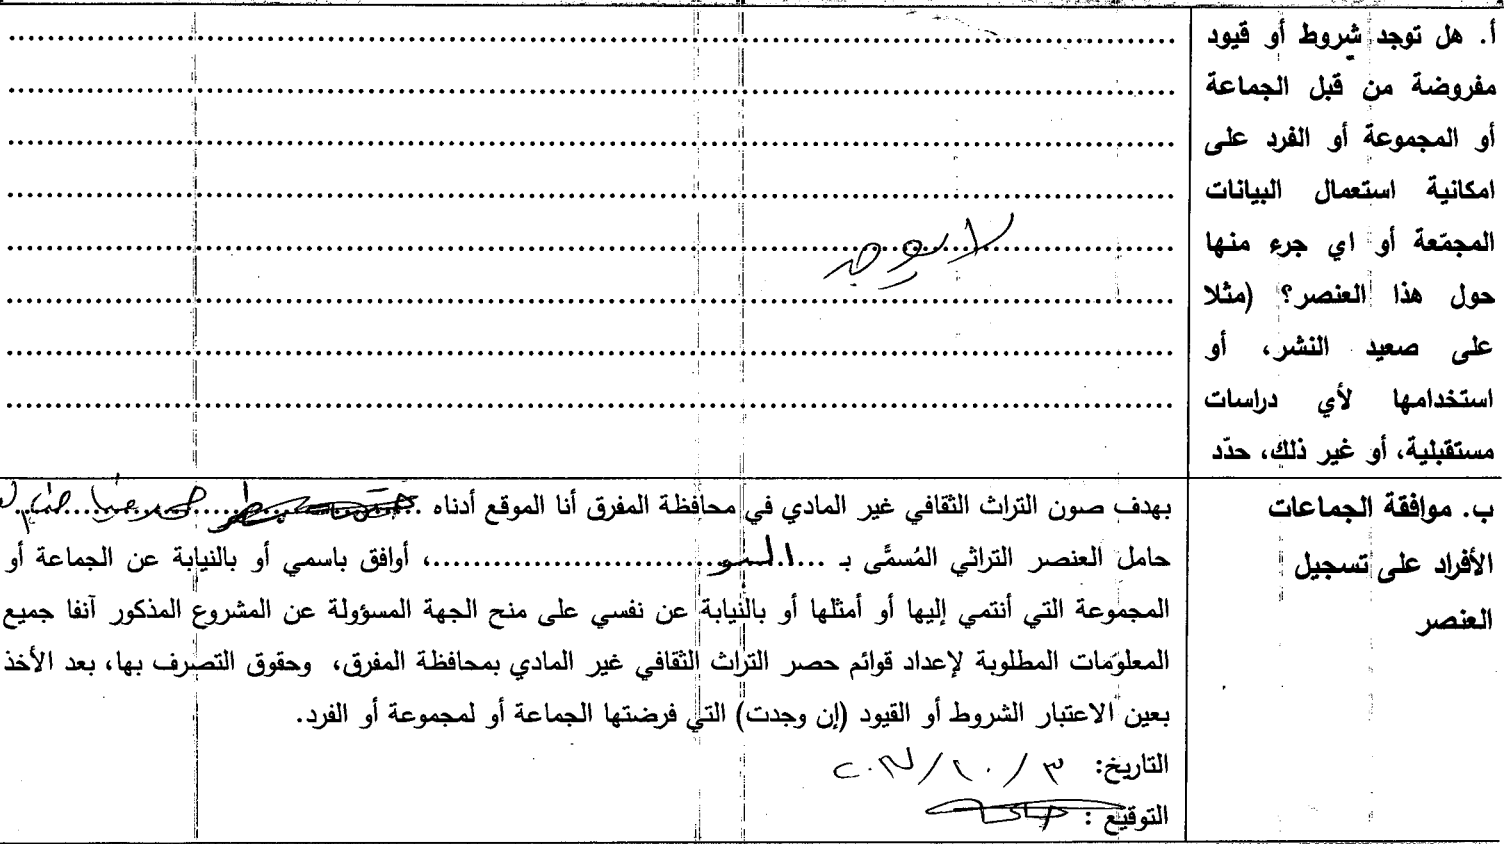 أ. هل توجد شروط أو قيود
مفروضة من قبل الجماعة
أو المجموعة أو الفرد على
امكانية استعمال البيانات
المجمّعة أو اي جرء منها
حول هذا العنصر؟ (مثلا
على صعيد النشر، أو
استخدامها لأي دراسات
مستقبلية، أو غير ذلك، حدّد
لا يوجد
ب. موافقة الجماعات
الأفراد على تسجيل
العنصر
بهدف صون التراث الثقافي غير المادي في محافظة المفرق أنا الموقع أدناه
حامل العنصر التراثي المُسمَّى بـ ......، أوافق باسمي أو بالنيابة عن الجماعة أو
المجموعة التي أنتمي إليها أو أمثلها أو بالنيابة عن نفسي على منح الجهة المسؤولة عن المشروع المذكور آنفا جميع
المعلومات المطلوبة لإعداد قوائم حصر التراث الثقافي غير المادي بمحافظة المفرق، وحقوق التصرف بها، بعد الأخذ
بعين الاعتبار الشروط أو القيود (إن وجدت) التي فرضتها الجماعة أو لمجموعة أو الفرد.
التاريخ:
التوقيع :